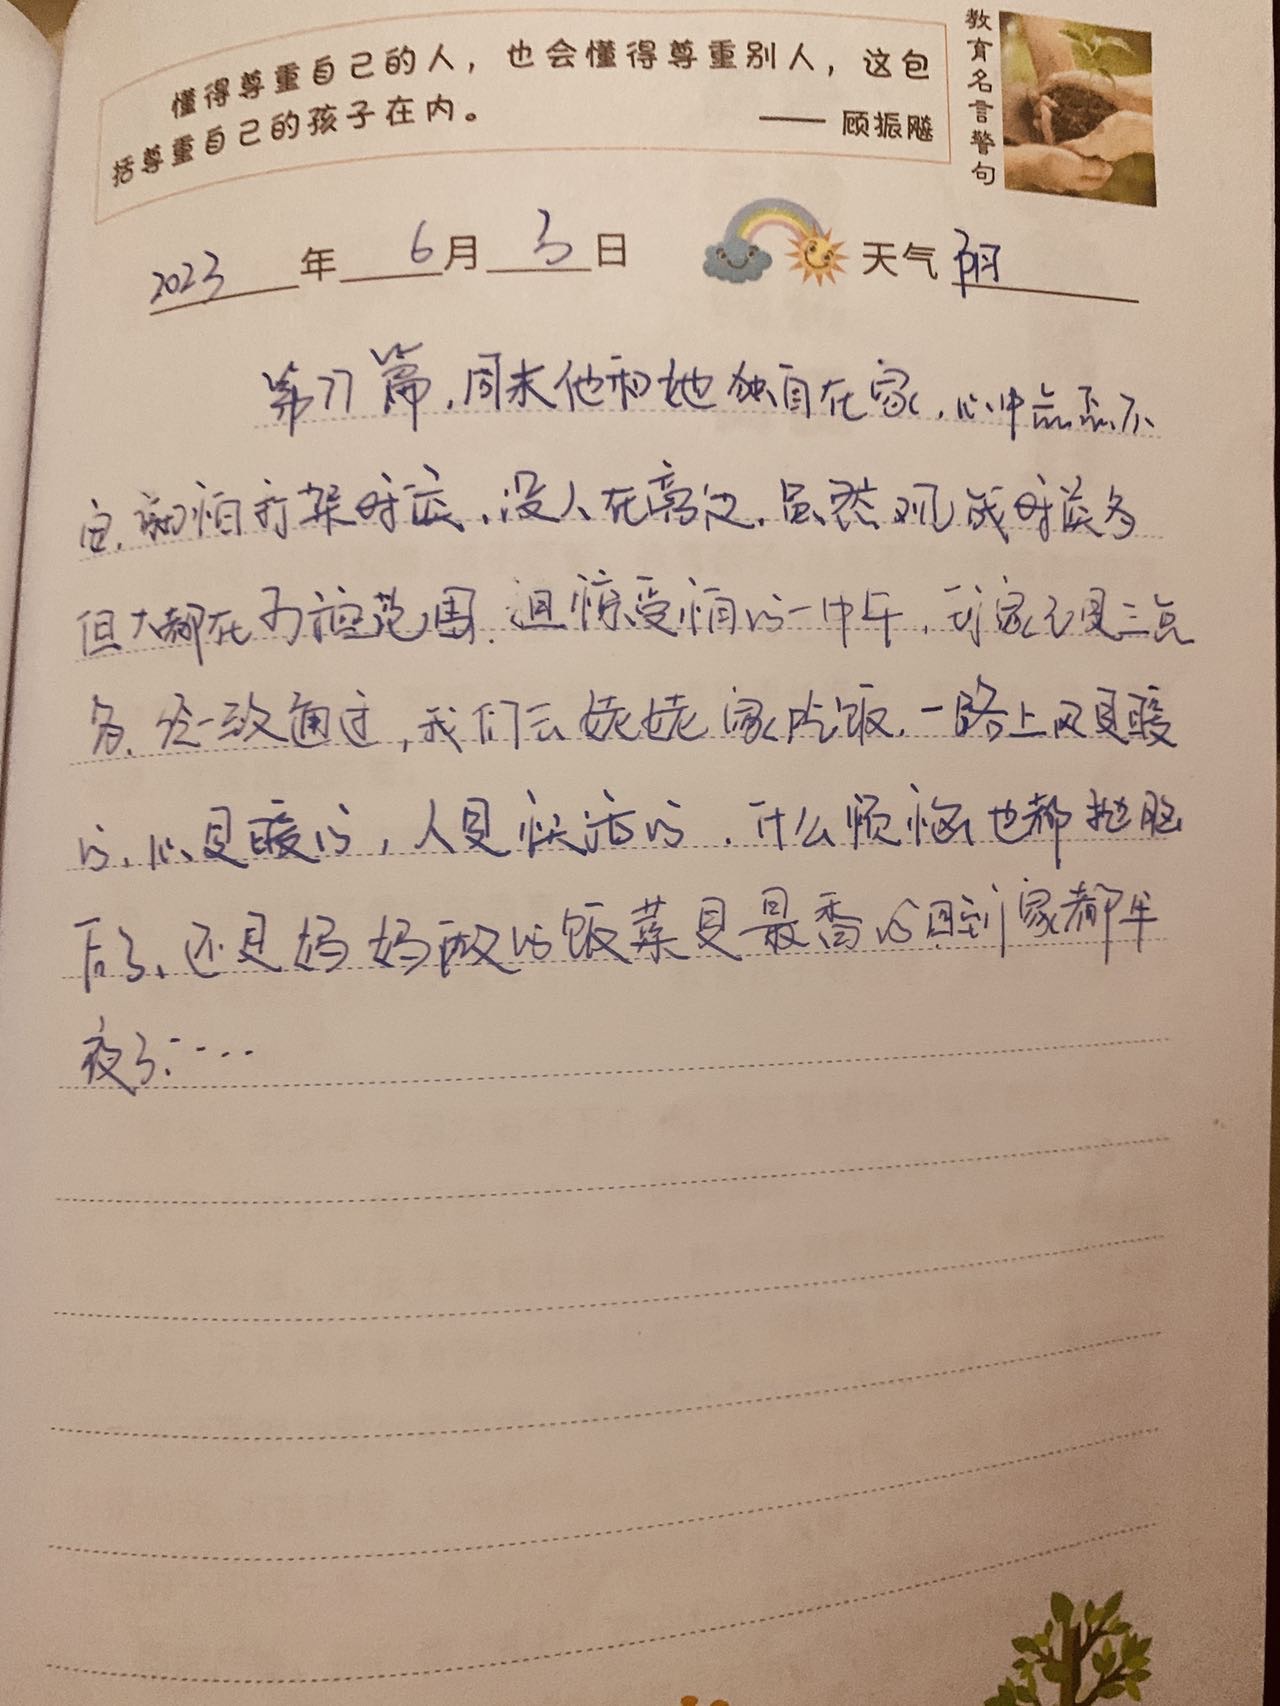 懂得尊重自己的人，也会懂得尊重别人，这包
括尊重自己的孩子在内。
—— 顾振飚
教育名言警句
2023 年 6 月 3 日 天气 阴
第77篇，周末他和她独自在家，心中忐忑不
定，怕打架时候，没人在旁边，虽然现战时候多
但大都在可控范围，担惊受怕的一中午，到家已是三点
多，经一致通过，我们去姥姥家吃饭，一路上风是暖
的，心是暖的，人是快活的，什么烦恼也都抛脑
后了，还是妈妈做的饭菜是最香的回到家都半
夜了……